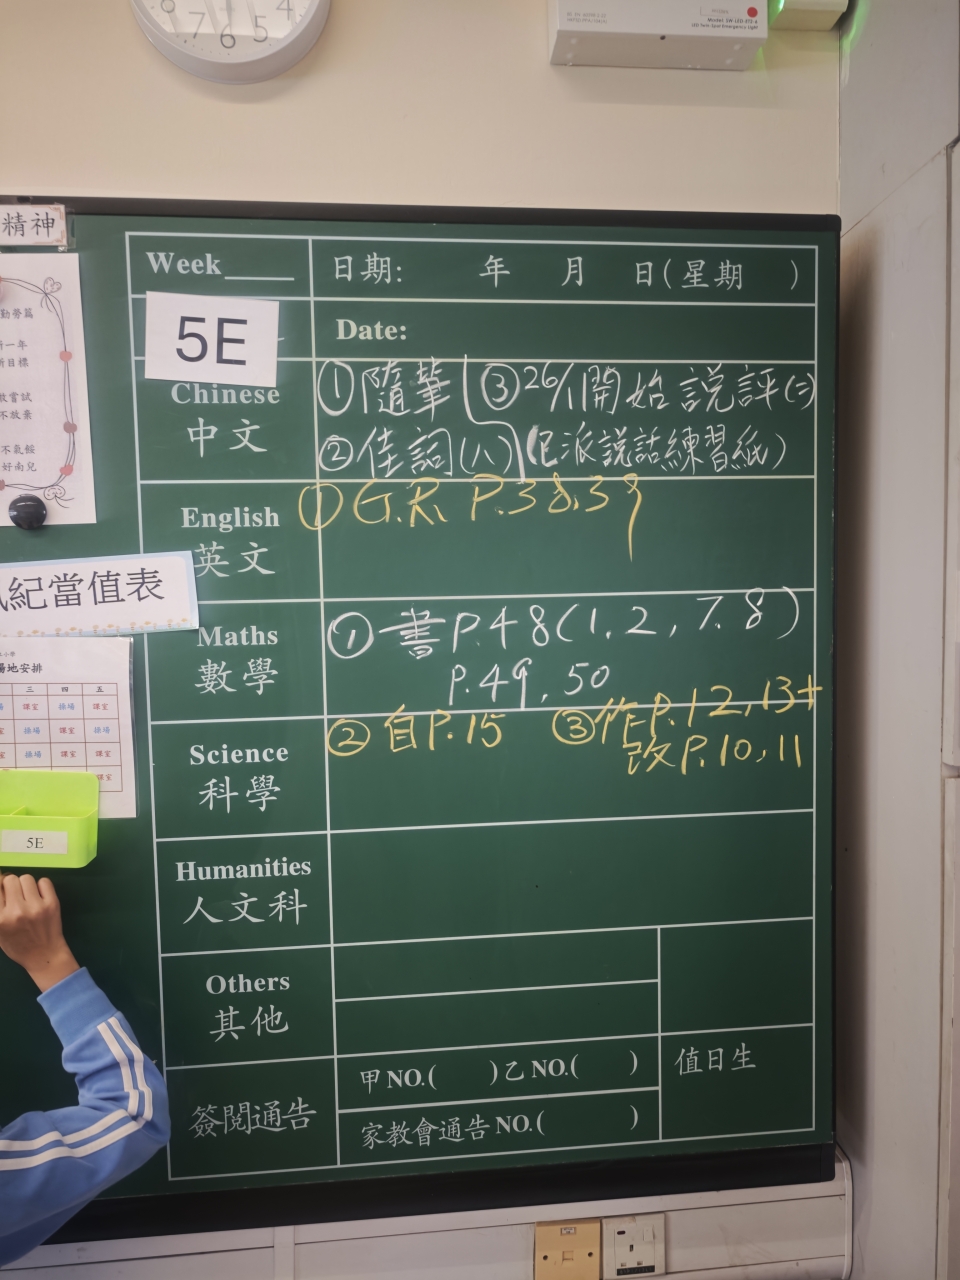 7 6 5 4
精神
勤勞篇
新一年
新目標
敢嘗試
不放棄
不氣餒
好南兒
紀當值表
場地安排
三 四 五
課室 操場 課室
操場 課室 操場
操場 課室 課室
課室
5E
Model: SW-LED-2T2-A
LED Twin Spot Emergency Light
Week
日期: 年 月 日(星期 )
5E
Date:
Chinese
中文
①隨筆 ③26/1開始説評(三)
②佳詞(八) (已派説話練習紙)
English
英文
① G.R. P.38,39
Maths
數學
① 書P.48(1,2,7,8)
P.49,50
Science
科學
② 自P.15 ③作P.12,13+
改P.10,11
Humanities
人文科
Others
其他
簽閱通告
甲NO.( )乙NO.( )
家教會通告NO.( )
值日生